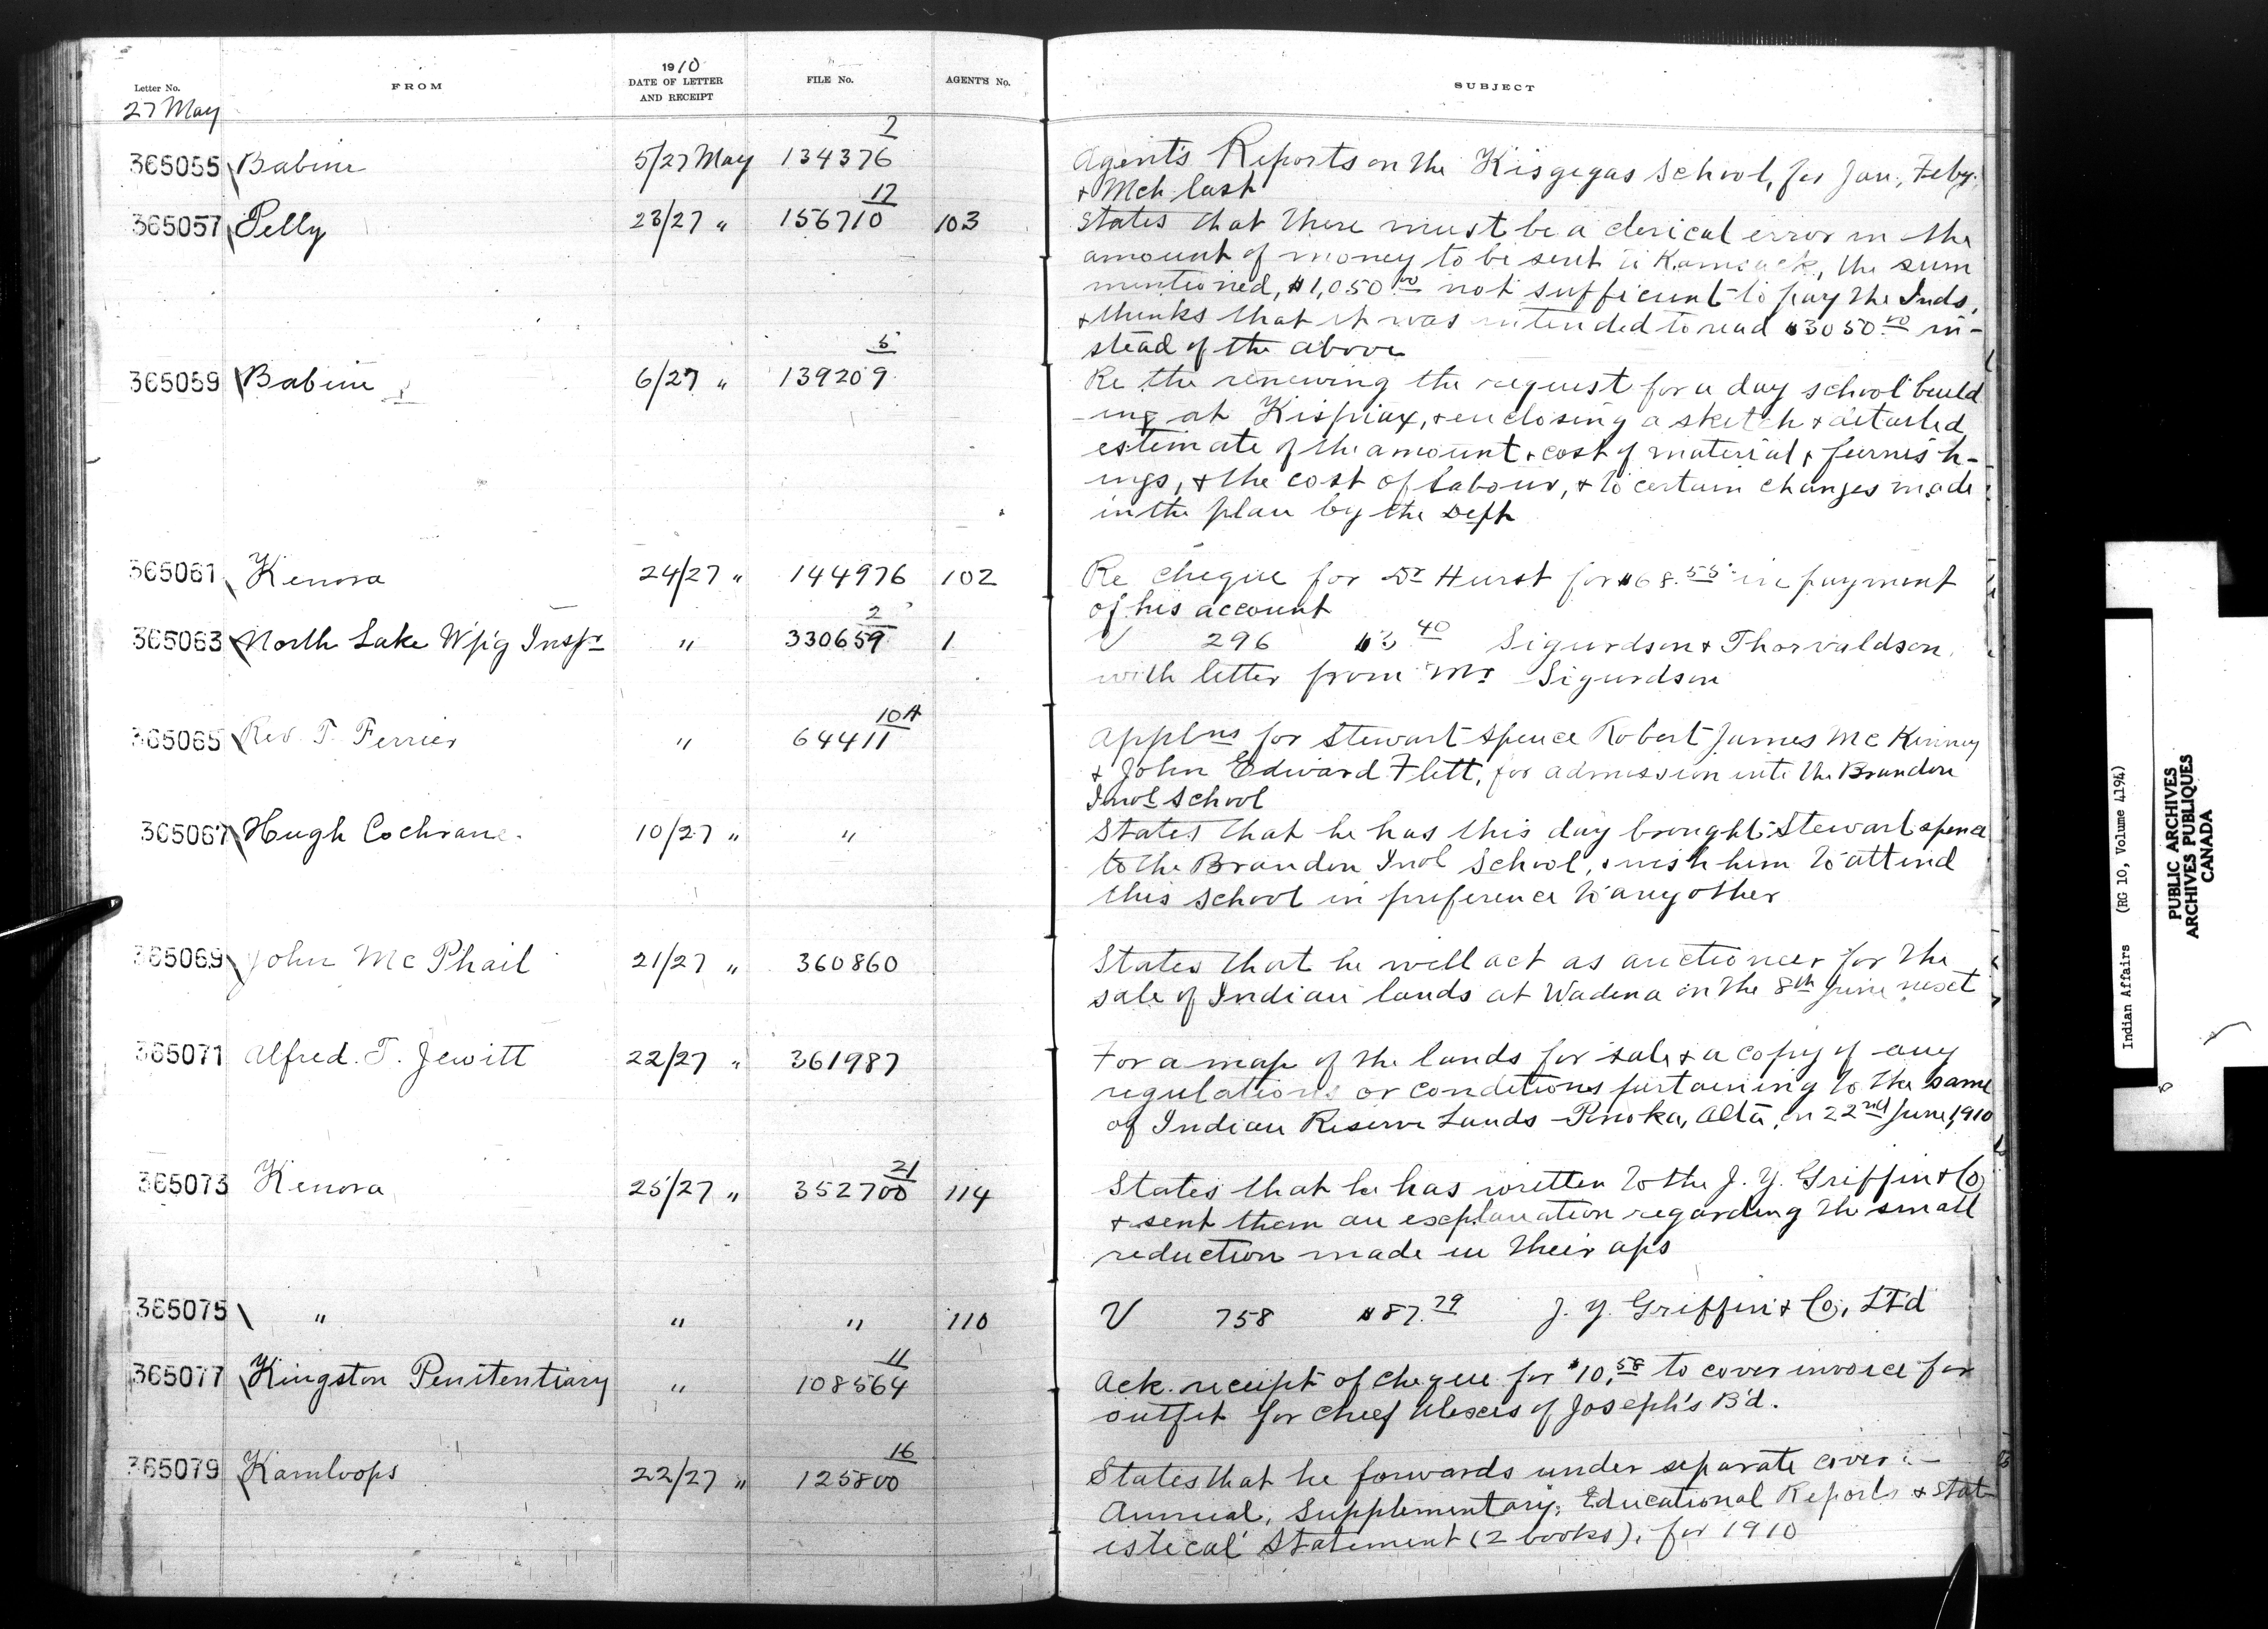 Letter No. FROM 1910 DATE OF LETTER AND RECEIPT FILE No. AGENT'S No. SUBJECT
27 May
365055 Babine 5/27 May 134376 7 Agent's Reports on the Kisgegas School, for Jan., Feby.
+ Mch last
365057 Pelly 23/27 " 156710 17 103 States that there must be a clerical error in the
amount of money to be sent to Kamsack, the sum
mentioned, $1,050.00 not sufficient to pay the Inds,
+ thinks that it was intended to read $3050.00 in-
stead of the above
365059 Babine 6/27 " 139209 5 Re the renewing the request for a day school build
-ing at Kispiax, + enclosing a sketch + detailed
estimate of the amount + cost of material + furnish-
ings, + the cost of labour, + to certain changes made
in the plan by the Dept
365061 Kenora 24/27 " 144976 102 Re cheque for Dr Hurst for $68.55 in payment
of his account
365063 North Lake Wpg Inspr " 330659 2 1 V 296 $3.40 Sigurdson + Thorvaldson,
with letter from Mr Sigurdson
365065 Rev. T. Ferrier " 64411 10A Applns for Stewart Spence Robert James McKinney
+ John Edward Flett, for admission into the Brandon
Indl School
365067 Hugh Cochrane. 10/27 " " States that he has this day brought Stewart Spence
to the Brandon Indl School, + wish him to attend
this school in preference to any other
365069 John McPhail 21/27 " 360860 States that he will act as auctioneer for the
sale of Indian lands at Wadena on the 8th June next
365071 Alfred. T. Jewitt 22/27 " 361987 For a map of the lands for sale + a copy of any
regulations or conditions pertaining to the same
of Indian Reserve Lands - Ponoka, Alta, on 22nd June, 1910
365073 Kenora 25/27 " 352700 21 114 States that he has written to the J. Y. Griffin + Co
+ sent them an explanation regarding the small
reduction made in their a/ps
365075 " " " 110 V 758 $87.79 J. Y. Griffin + Co, Ltd
365077 Kingston Penitentiary " 108564 11 Ack. receipt of cheque for $10.58 to cover invoice for
outfit for Chief Alexis of Joseph's B'd.
365079 Kamloops 22/27 " 125800 16 States that he forwards under separate cover:-
Annual, Supplementary, Educational Reports + Stat-
istical Statement (2 books), for 1910
Indian Affairs (RG 10, Volume 4194)
PUBLIC ARCHIVES
ARCHIVES PUBLIQUES
CANADA